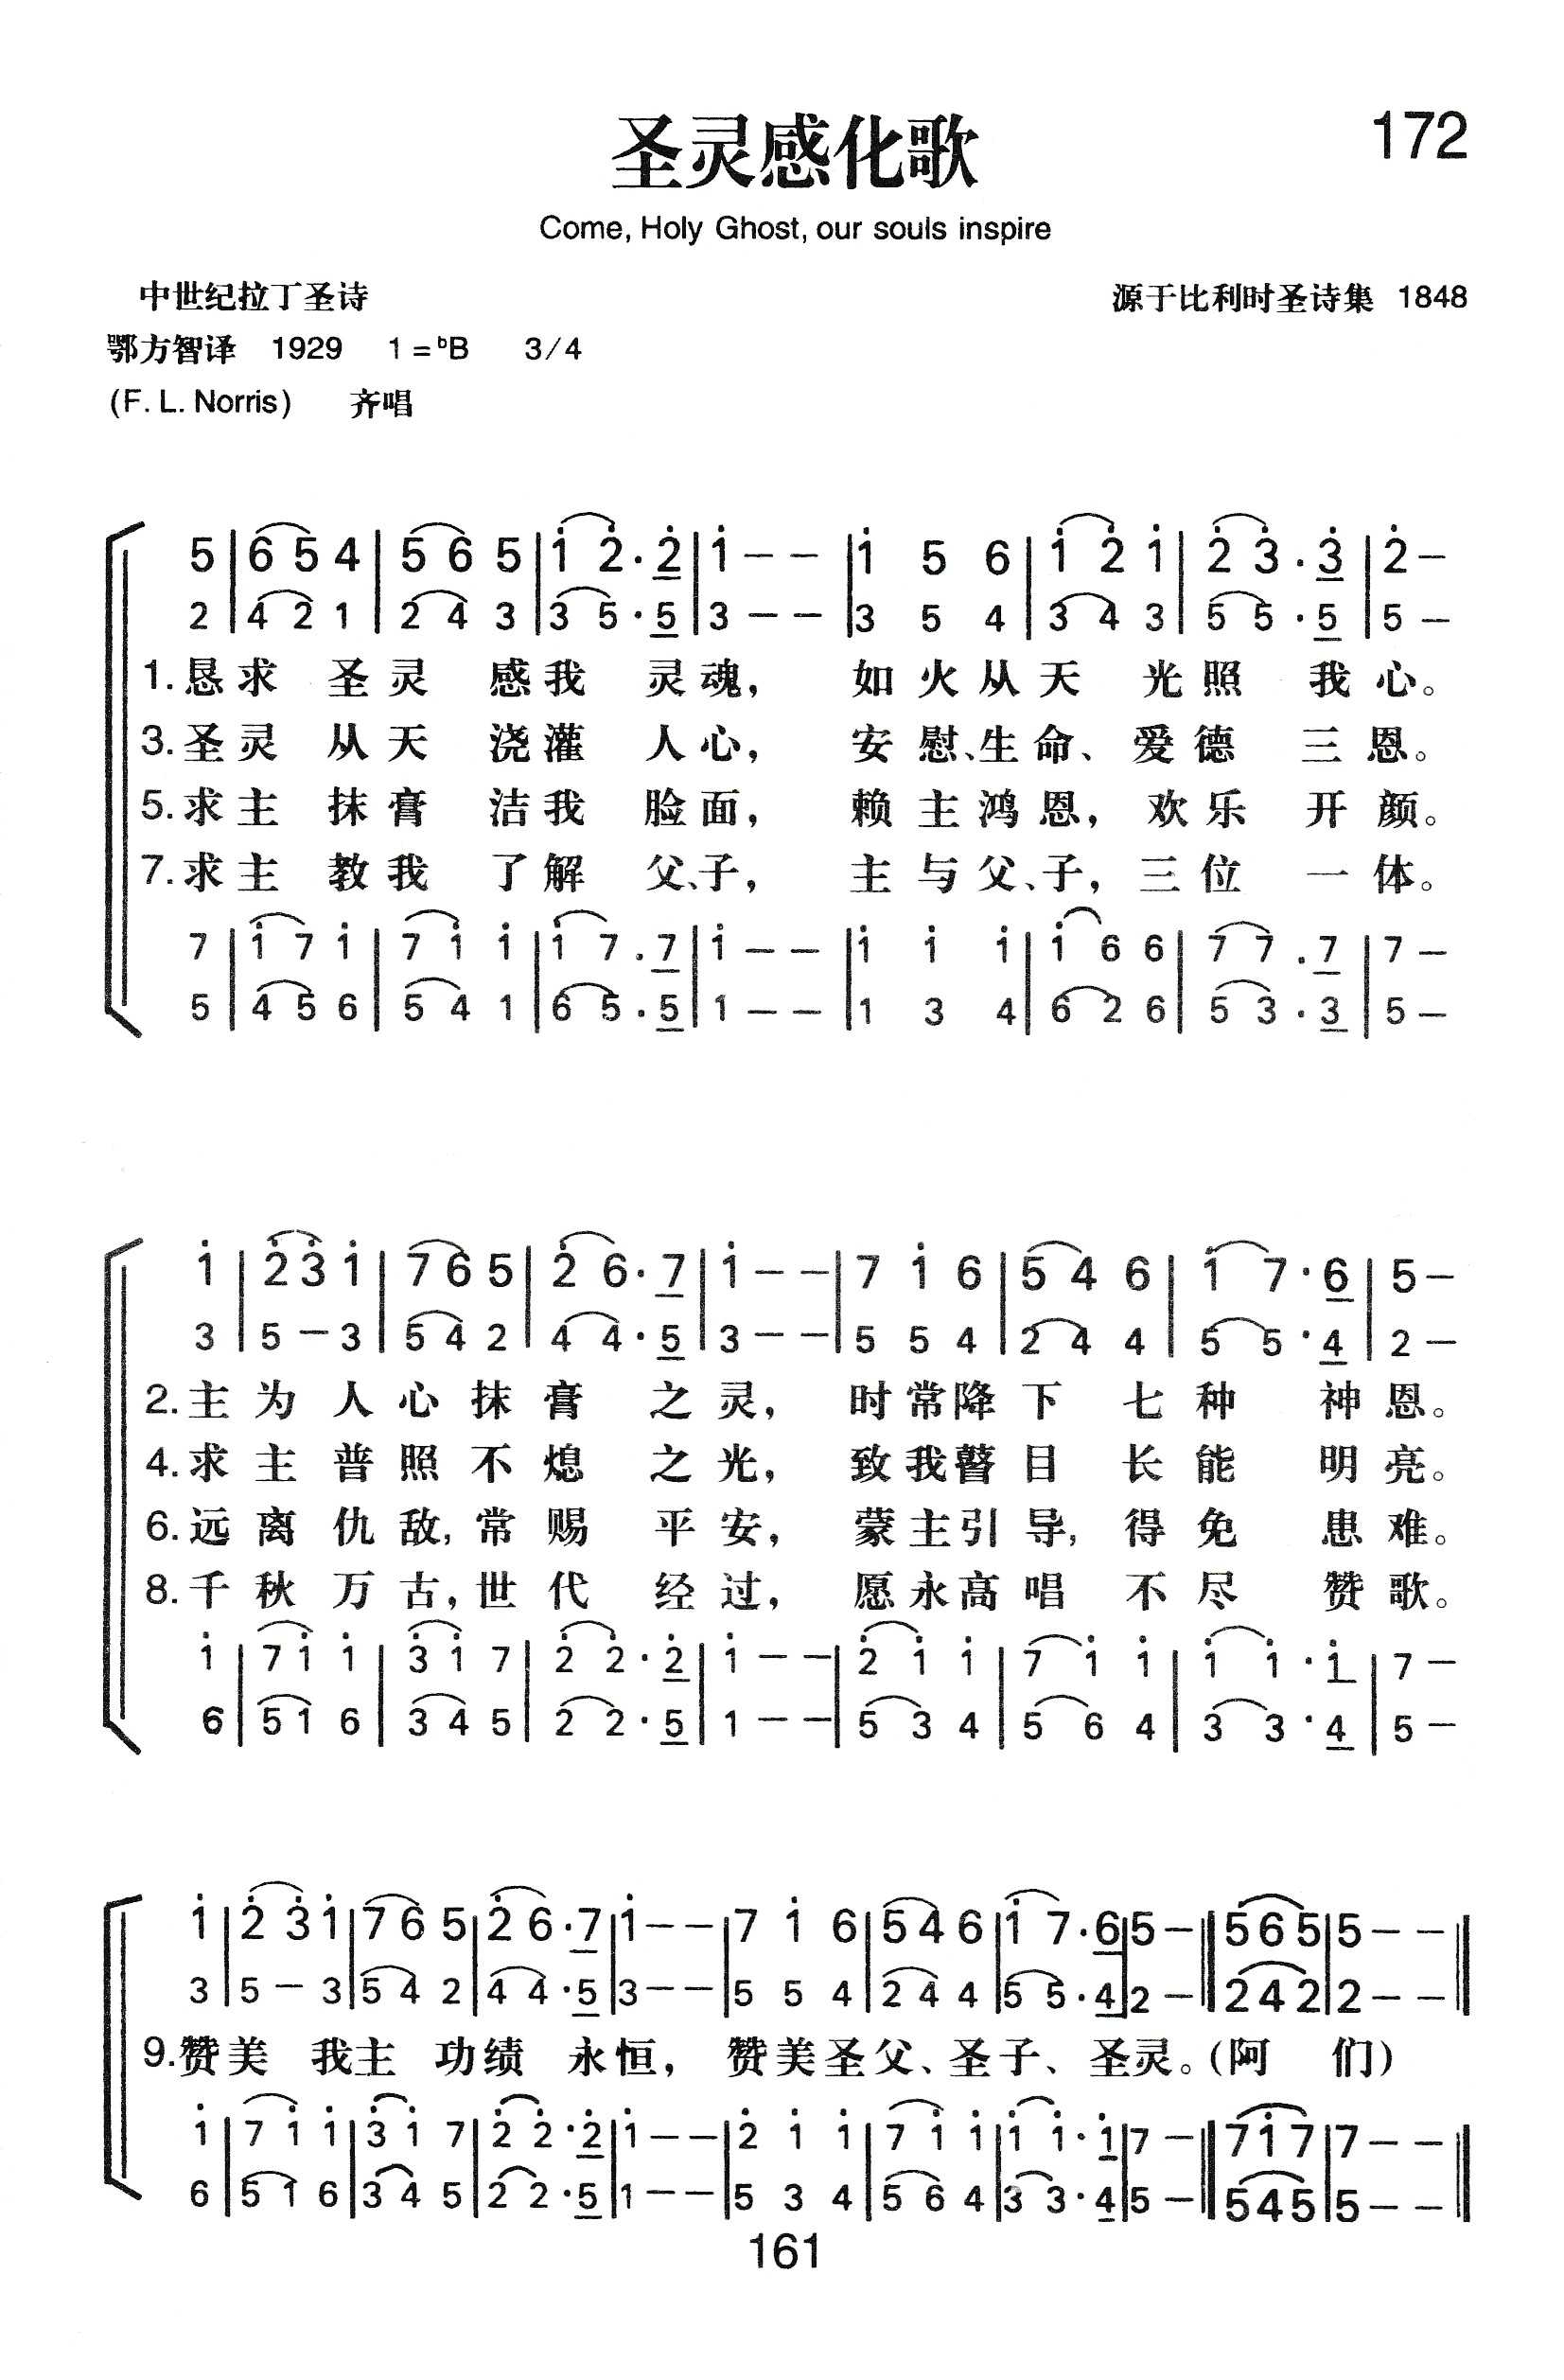 172
圣灵感化歌
Come, Holy Ghost, our souls inspire
中世纪拉丁圣诗 源于比利时圣诗集 1848
鄂方智译 1929 1=ᵇB 3/4
(F. L. Norris) 齐唱
5 | 6 5 4 | 5 6 5 | 1̇ 2̇ · 2̇ | 1̇ – – | 1̇ 5 6 | 1̇ 2̇ 1̇ | 2̇ 3̇ · 3̇ | 2̇ –
2 | 4 2 1 | 2 4 3 | 3 5 · 5 | 3 – – | 3 5 4 | 3 4 3 | 5 5 · 5 | 5 –
1. 恳求 圣灵 感我 灵魂, 如火从天 光照 我心。
3. 圣灵 从天 浇灌 人心, 安慰、生命、爱德 三恩。
5. 求主 抹膏 洁我 脸面, 赖主鸿恩, 欢乐 开颜。
7. 求主 教我 了解 父、子, 主与父、子, 三位 一体。
7 | 1̇ 7 1̇ | 7 1̇ 1̇ | 1̇ 7 . 7 | 1̇ – – | 1̇ 1̇ 1̇ | 1̇ 6 6 | 7 7 . 7 | 7 –
5 | 4 5 6 | 5 4 1 | 6 5 . 5 | 1 – – | 1 3 4 | 6 2 6 | 5 3 · 3 | 5 –
1̇ | 2̇ 3̇ 1̇ | 7 6 5 | 2̇ 6 · 7 | 1̇ – – | 7 1̇ 6 | 5 4 6 | 1̇ 7 · 6 | 5 –
3 | 5 – 3 | 5 4 2 | 4 4 · 5 | 3 – – | 5 5 4 | 2 4 4 | 5 5 · 4 | 2 –
2. 主为人心抹膏 之灵, 时常降下 七种 神恩。
4. 求主普照不熄 之光, 致我瞽目 长能 明亮。
6. 远离仇敌, 常赐 平安, 蒙主引导, 得免 患难。
8. 千秋万古, 世代 经过, 愿永高唱 不尽 赞歌。
1̇ | 7 1̇ 1̇ | 3̇ 1̇ 7 | 2̇ 2̇ · 2̇ | 1̇ – – | 2̇ 1̇ 1̇ | 7 1̇ 1̇ | 1̇ 1̇ · 1̇ | 7 –
6 | 5 1 6 | 3 4 5 | 2 2 · 5 | 1 – – | 5 3 4 | 5 6 4 | 3 3 · 4 | 5 –
1̇ | 2̇ 3̇ 1̇ | 7 6 5 | 2̇ 6 · 7 | 1̇ – – | 7 1̇ 6 | 5 4 6 | 1̇ 7 · 6 | 5 – || 5 6 5 | 5 – – ||
3 | 5 – 3 | 5 4 2 | 4 4 · 5 | 3 – – | 5 5 4 | 2 4 4 | 5 5 · 4 | 2 – || 2 4 2 | 2 – – ||
9. 赞美 我主 功绩 永恒, 赞美圣父、圣子、圣灵。(阿 们)
1̇ | 7 1̇ 1̇ | 3̇ 1̇ 7 | 2̇ 2̇ · 2̇ | 1̇ – – | 2̇ 1̇ 1̇ | 7 1̇ 1̇ | 1̇ 1̇ · 1̇ | 7 – || 7 1̇ 7 | 7 – – ||
6 | 5 1 6 | 3 4 5 | 2 2 · 5 | 1 – – | 5 3 4 | 5 6 4 | 3 3 · 4 | 5 – || 5 4 5 | 5 – – ||
161